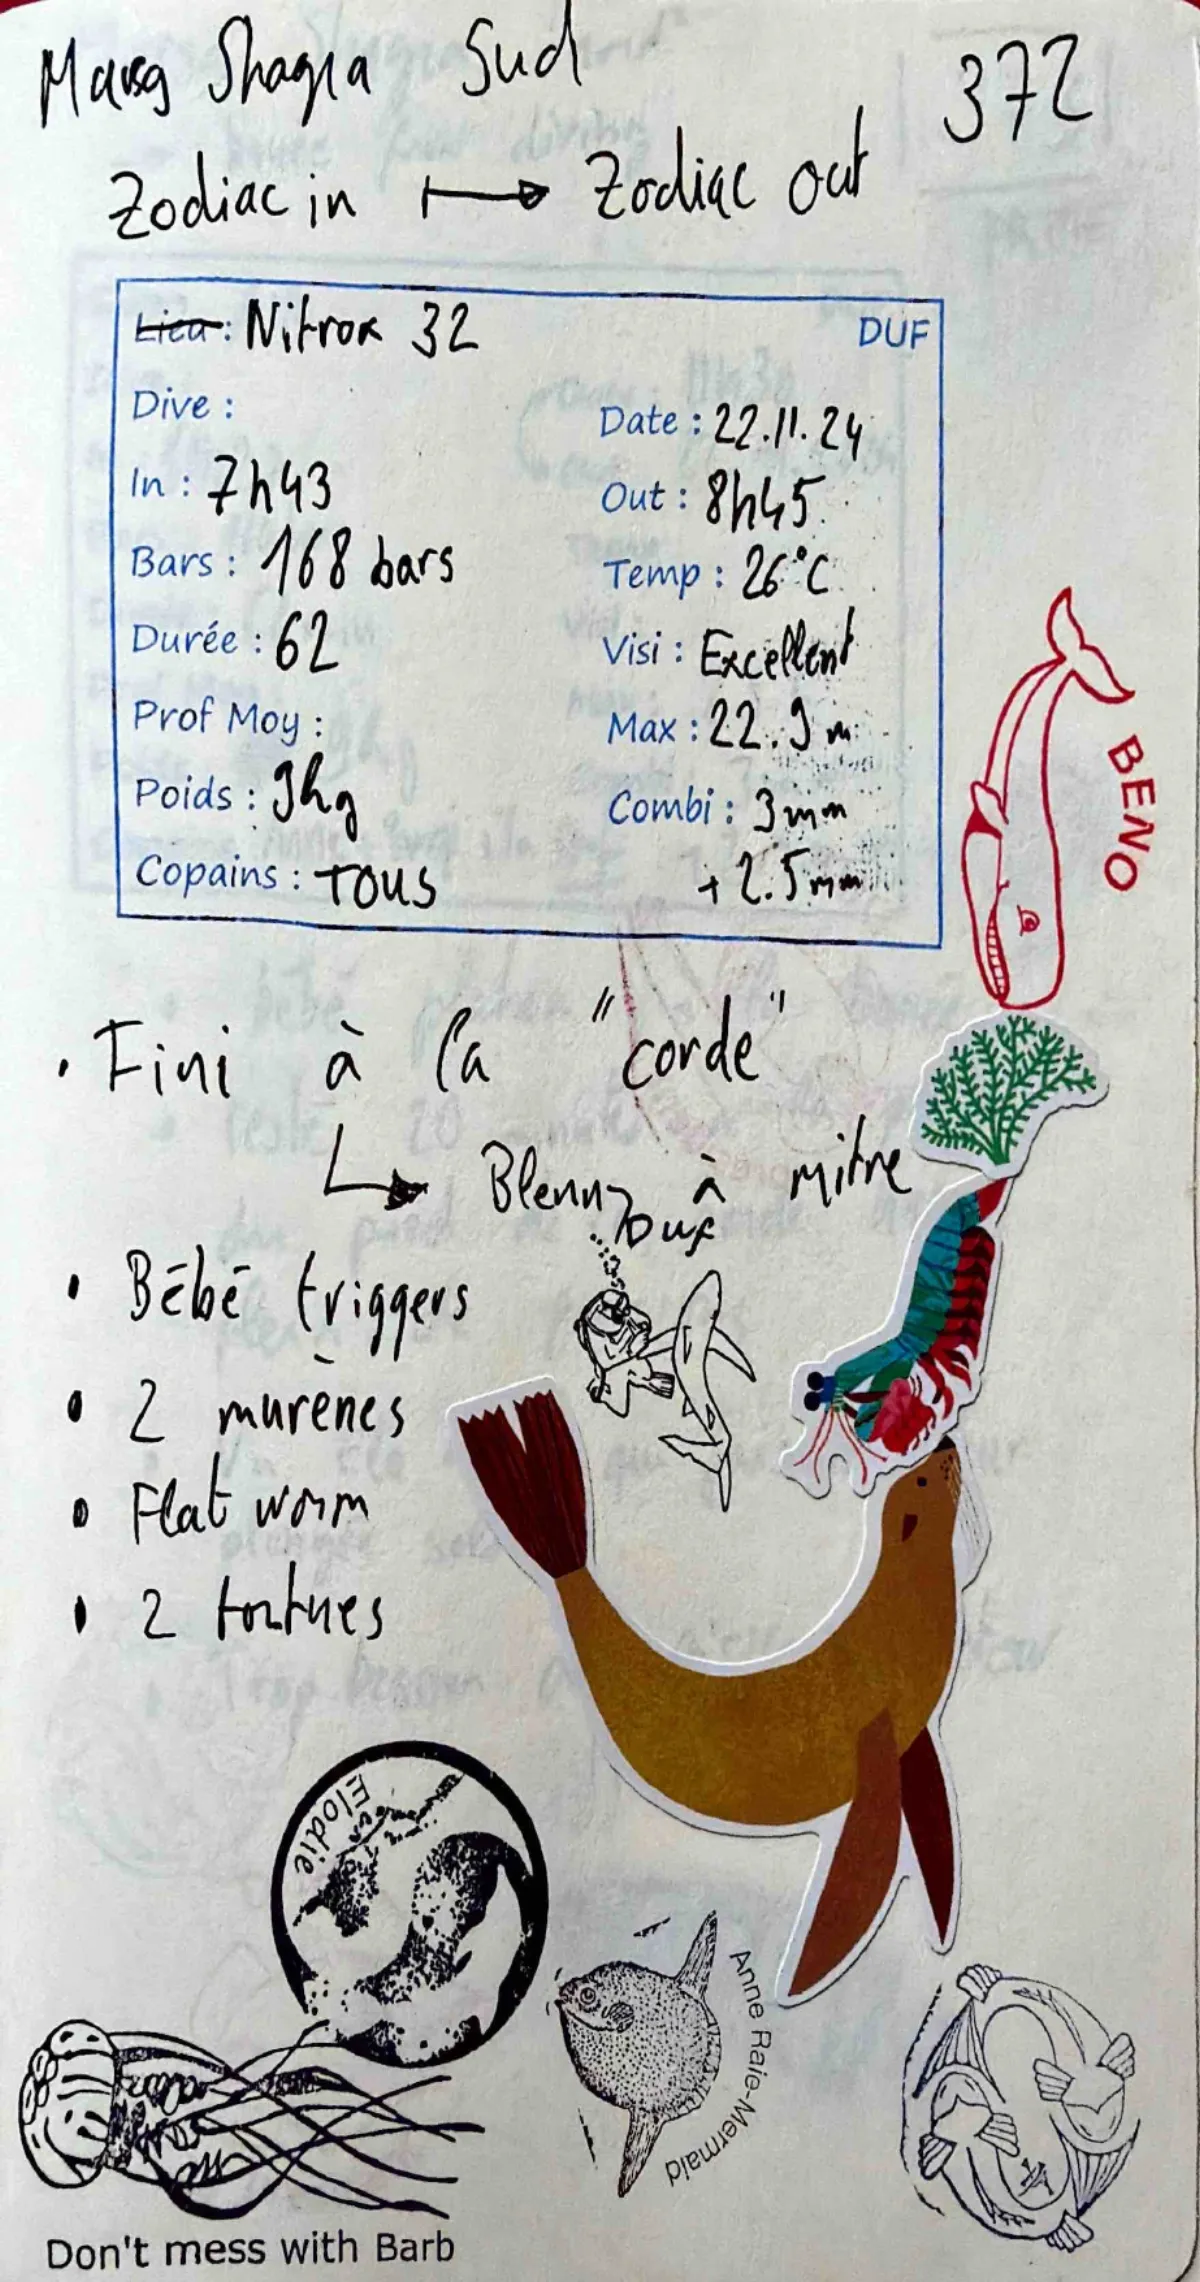 Marsa Shagra Sud
372
Zodiac in → Zodiac out
Lieu : Nitrox 32
DUF
Dive :
Date : 22.11.24
In : 7h43
Out : 8h45
Bars : 168 bars
Temp : 26°C
Durée : 62
Visi : Excellent
Prof Moy :
Max : 22.9 m
Poids : 9kg
Combi : 3mm
Copains : TOUS
+ 2.5mm
BENO
• Fini à la "corde"
↳ à mitre
• Bébé triggers
• 2 murènes
• Flat worm
• 2 tortues
Elodie
Anne Ralie-Mermaid
Don't mess with Barb